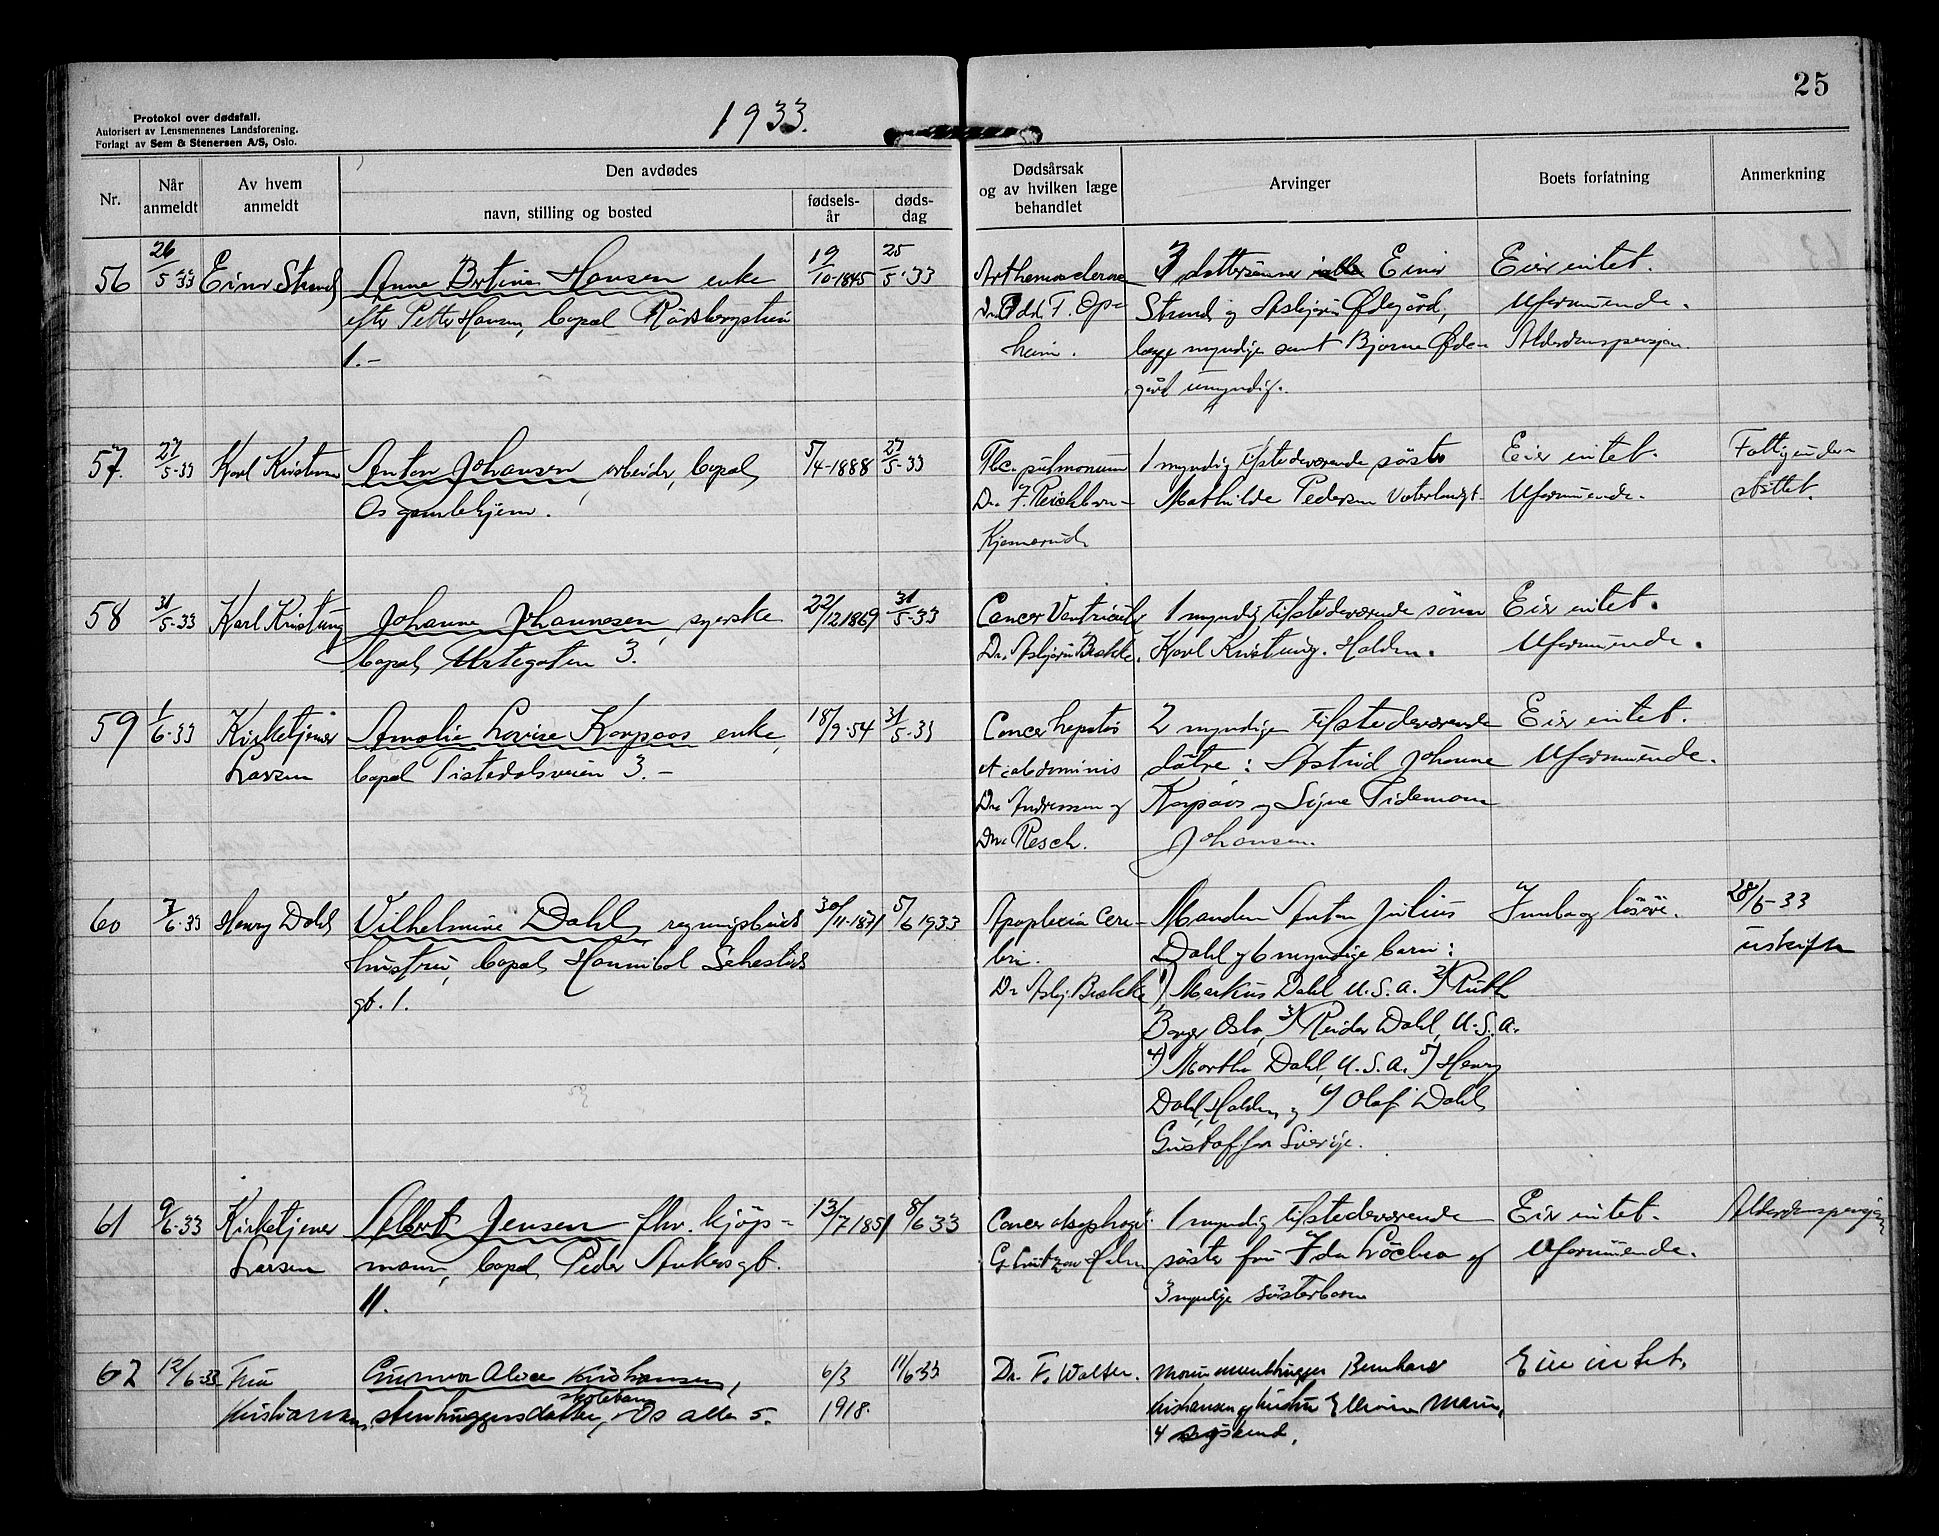 25
Protokol over dødsfall.
Autorisert av Lensmennenes Landsforening.
Forlagt av Sem & Stenersen A/S, Oslo.
1933.
Nr.
Når anmeldt
Av hvem anmeldt
Den avdødes
navn, stilling og bosted
fødsels-år
døds-dag
Dødsårsak og av hvilken læge behandlet
Arvinger
Boets forfatning
Anmerkning
56
26/5-33
Einar Strand
Anne Bertine Hansen enke
efter Petter Hansen, bopæl
1.-
19/10-1845
25/5-33
Dr. Odd F. Ops-
heim.
3 dattersønner Einar
Strand og Asbjørn Ødegård,
begge myndige samt Bjarne Øde-
gård umyndig.
Eier intet.
Uformuende.
Alderdomspensjon
57.
27/5-33
Karl Kristensen
Anton Johansen, arbeider, bopæl
Os gamlehjem.
5/4-1888
27/5-33
Tbc. pulmonum
Dr. F. Reichborn-
Kjennerud
1 myndig tilstedeværende søster
Mathilde Pedersen
Eier intet.
Uformuende.
Fattigunder-
støttet.
58
31/5-33
Karl Kristung
Johanne Johannesen, syerske
bopæl Urtegaten 3.
22/12 1869
31/5-33
Cancer Ventriculi
Dr. Asbjørn Bakke.
1 myndig tilstedeværende sønn
Karl Kristung. Halden.
Eier intet.
Uformuende.
59
1/6-33
Kirketjener
Larsen
Amalie Lovise Korpaas enke,
bopæl Tistedalsveien 3.-
18/9-54
31/5-33
Cancer hepatis
et abdominis
Dr. Andressen og
Dr. Resch.
2 myndige tilstedeværende
døtre: Astrid Johanne
Korpaas og Signe Tidemann
Johansen.
Eier intet.
Uformuende.
60
7/6-33
Henry Dahl
Vilhelmine Dahl,
hustru, bopæl Hannibal Sehesteds
gt. 1.
30/11-1871
5/6 1933
Apoplexia Cere-
bri.
Dr. Asbj. Bakke
Manden Anton Julius
Dahl og 6 myndige barn:
1) Markus Dahl U.S.A. 2) Ruth
Oslo, 3) Reidar Dahl, U.S.A.
4) Martha Dahl, U.S.A. 5) Henry
Dahl, Halden, og 6) Olaf Dahl,
Sverige.
Innbo og løsøre.
28/6-33
uskifte
61
9/6-33
Kirketjener
Larsen
Albert Jensen fhv. kjøp-
mann, bopæl Peder Ankersgt.
11.
13/7 1851
8/6 33
Cancer
1 myndig tilstedeværende
søster fru Ida og
3 myndige søsterbarn
Eier intet.
Uformuende.
Alderdomspensjon
62
12/6-33
Fru
Kristiansen
Gunvor Alice Kristiansen,
skolebarn
stenhuggersdatter, Os alle 5.
6/3
1918.
11/6-33
Dr. F. Walter.
Monumenthugger Bernhard
Kristiansen og hustru Marie,
4 søskend.
Eier intet.